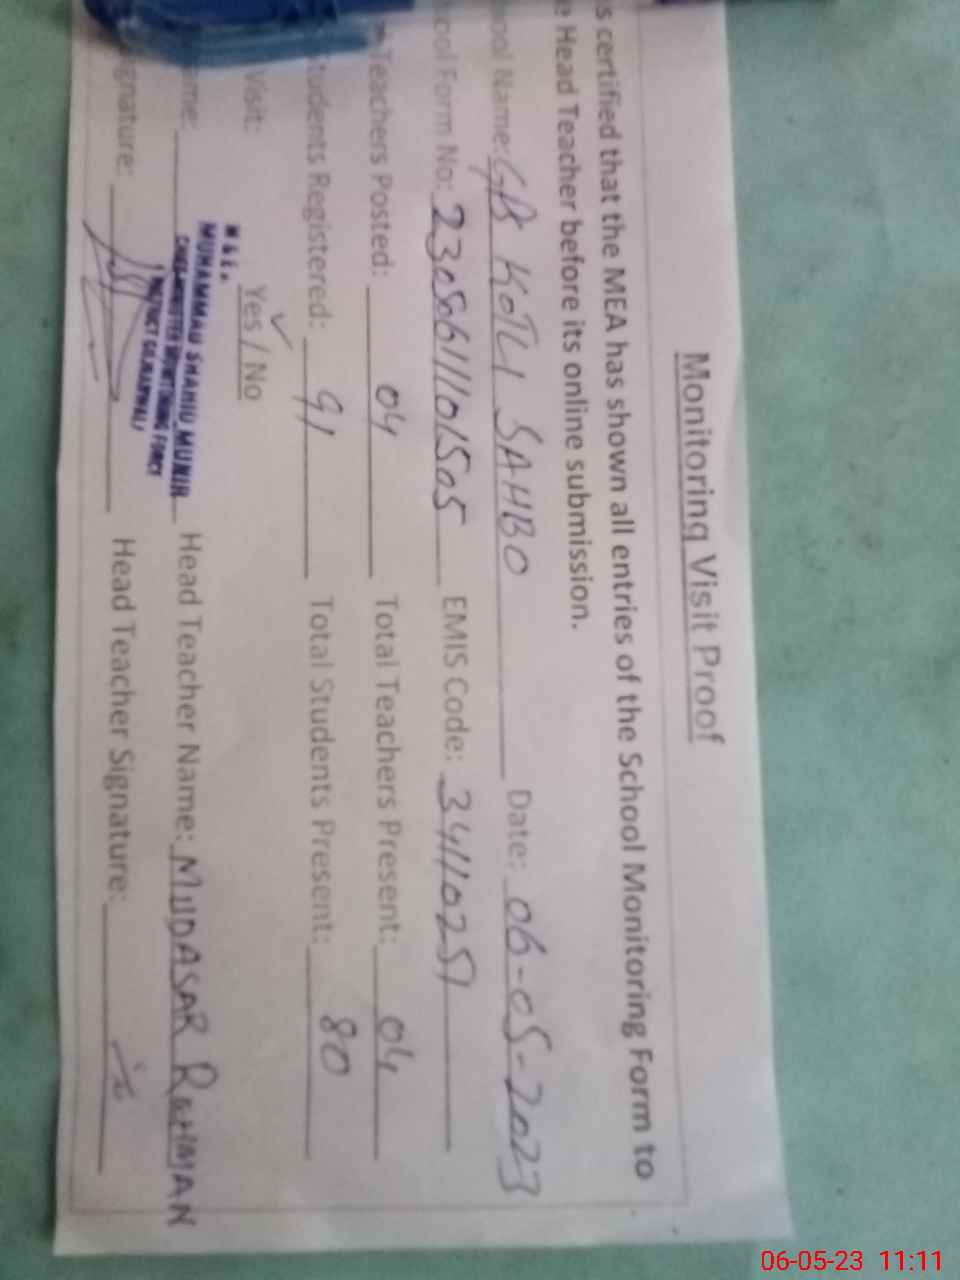 Monitoring Visit Proof
s certified that the MEA has shown all entries of the School Monitoring Form to
e Head Teacher before its online submission.
ool Name: GPS KOTLI SAHBO Date: 06-05-2023
ool Form No: EMIS Code: 34110251
Teachers Posted: 04 Total Teachers Present: 04
tudents Registered: 91 Total Students Present: 80
Visit: Yes / No
M & E.
ame: MUHAMMAD SHAHID MUNIR Head Teacher Name: MUDASAR REHMAN
CHIEF MINISTER MONITORING FORCE
DISTRICT GUJRANWALA
ignature: Head Teacher Signature:
06-05-23 11:11